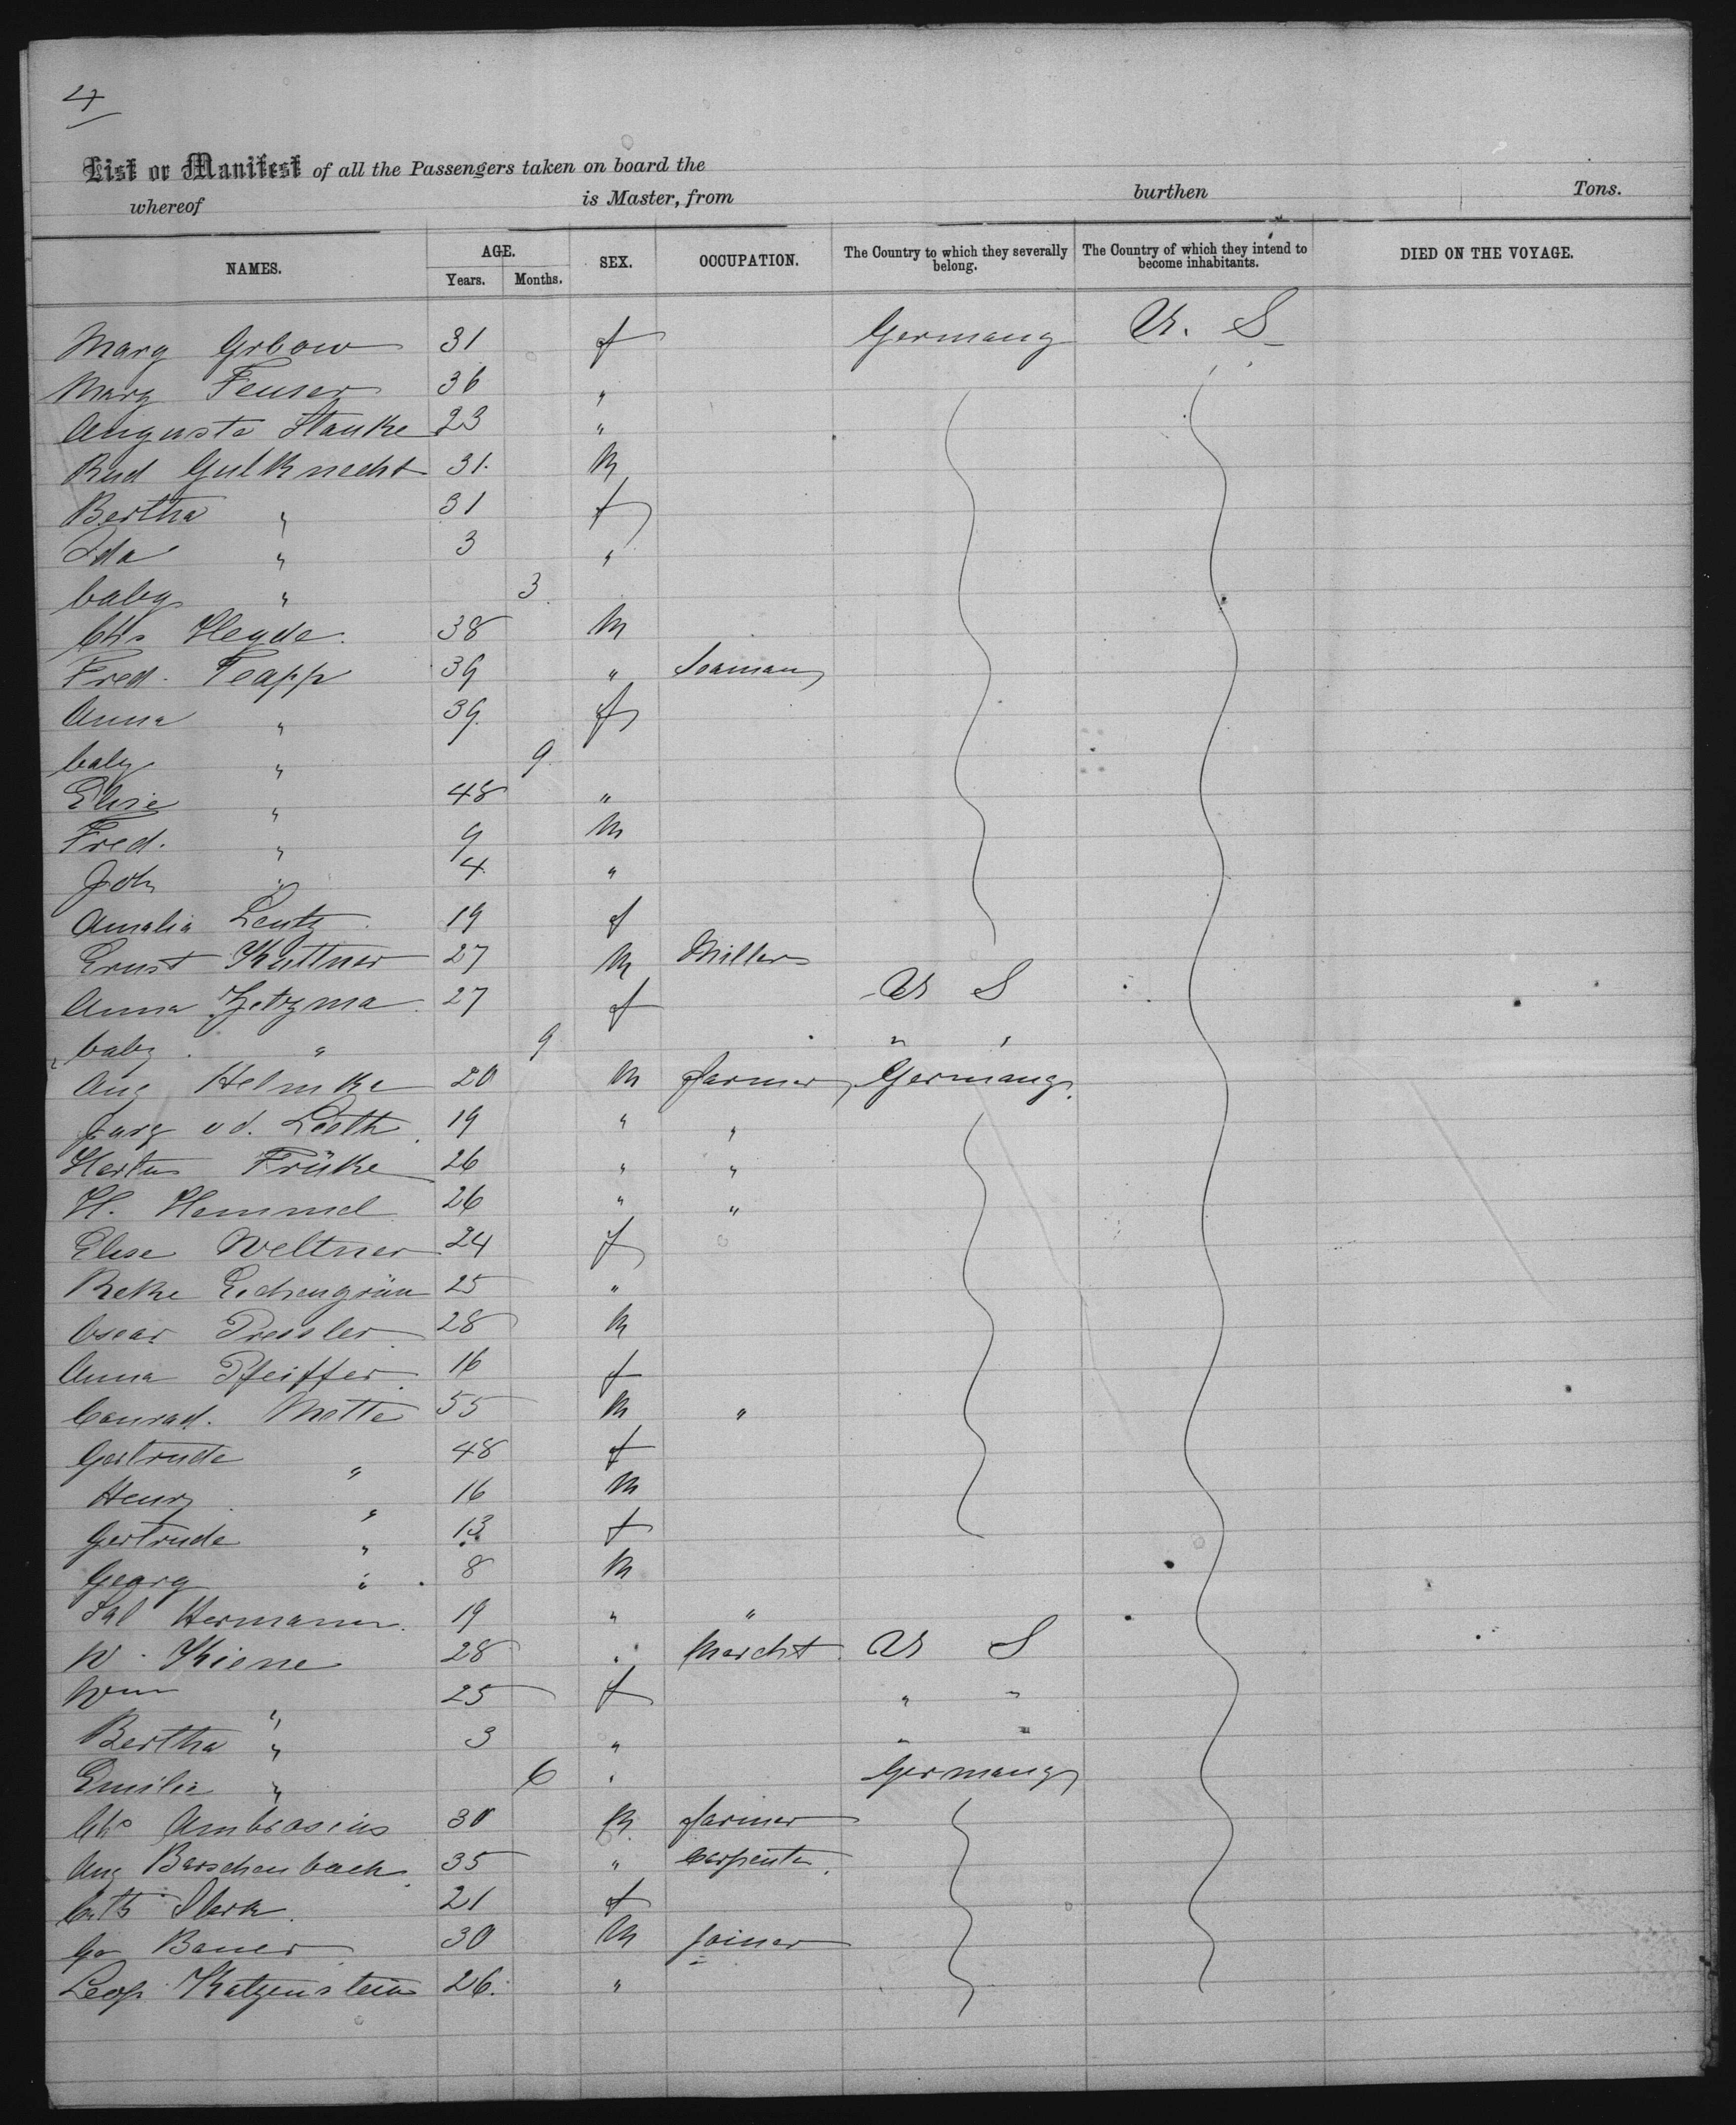 4
List or Manifest of all the Passengers taken on board the
whereof is Master, from burthen Tons.
NAMES. AGE. Years. Months. SEX. OCCUPATION. The Country to which they severally belong. The Country of which they intend to become inhabitants. DIED ON THE VOYAGE.
Marg Grbow 31 f Germany U. S
Marg Feuser 36 "
Auguste Stanke 23 "
Rud Gulknecht 31. M
Bertha " 31 f
Ida " 3 "
baby " 3
Chs Heyde. 38 M
Fred. Teapp 39 " Seaman
Anna " 39. f
baby " 9
Elise " 48 "
Fred. " 9 M
Joh " 4 "
Amalia Lentz 19 f
Ernst Kuttner 27 M Miller
Anna 27 f U S
baby " 9 " "
Aug Helmke 20 M farmer Germany
v d. Lieth 19 " "
Früke 26 " "
H. Hemmel 26 " "
Elise Weltner 24 f
Reke Eichengrün 25 "
Oscar Pressler 28 M
Anna Pfeiffer 16 f
Conrad. Motte 55 M "
Gertrude " 48 f
Henry " 16 M
Gertrude " 13 f
Georg " 8 M
Sal Hermann 19 " "
W. Kiene 28 " Marcht U S
Wm " 25 f " "
Bertha " 3 " " "
Emilie " 6 " Germany
Chs Ambrosius 30 M farmer
Aug Berschenbach 35 " Carpenter
Cath Stark 21 f
Go Bauer 30 M joiner
Leop Katzenstein 26. "